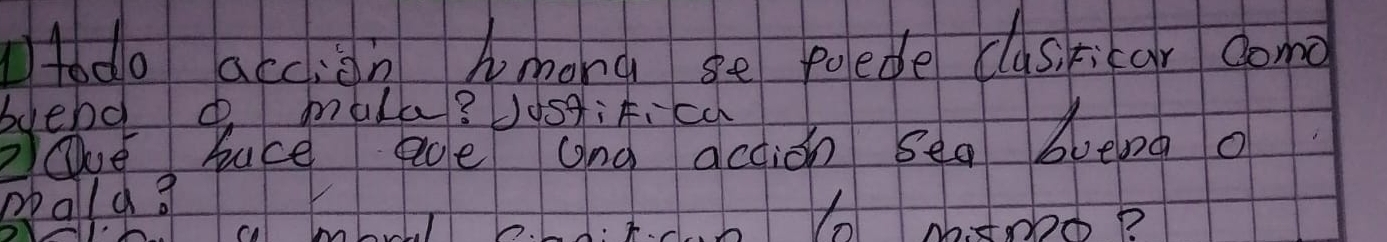 1) todo acción humana se puede clasificar como
buena o mala? Justifica
2) Qué hace que una acción sea buena o
mala?
moral lo mismo?